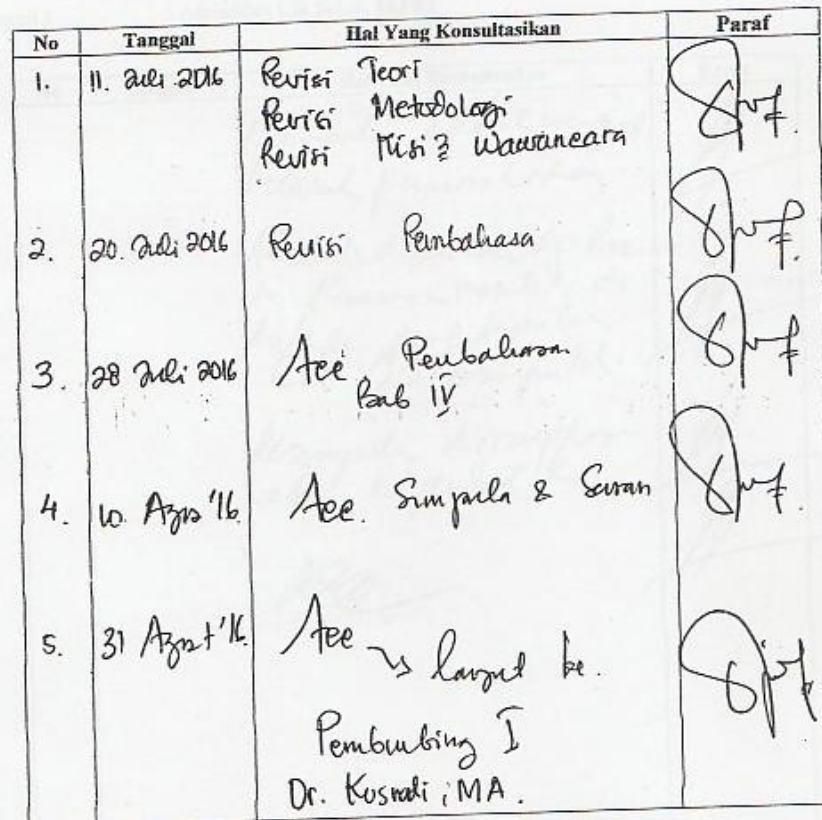 No Tanggal Hal Yang Konsultasikan Paraf
1. 11. Juli 2016 Revisi Teori
Revisi Metodologi
Revisi Kisi2 Wawancara
2. 20. Juli 2016 Revisi Pembahasa
3. 28 Juli 2016 Acc Pembahasan
Bab IV
4. 10. Agus '16. Acc. Simpula & Saran
5. 31 Agust '16. Acc → lanjut ke.
Pembimbing I
Dr. Kusnadi, MA.